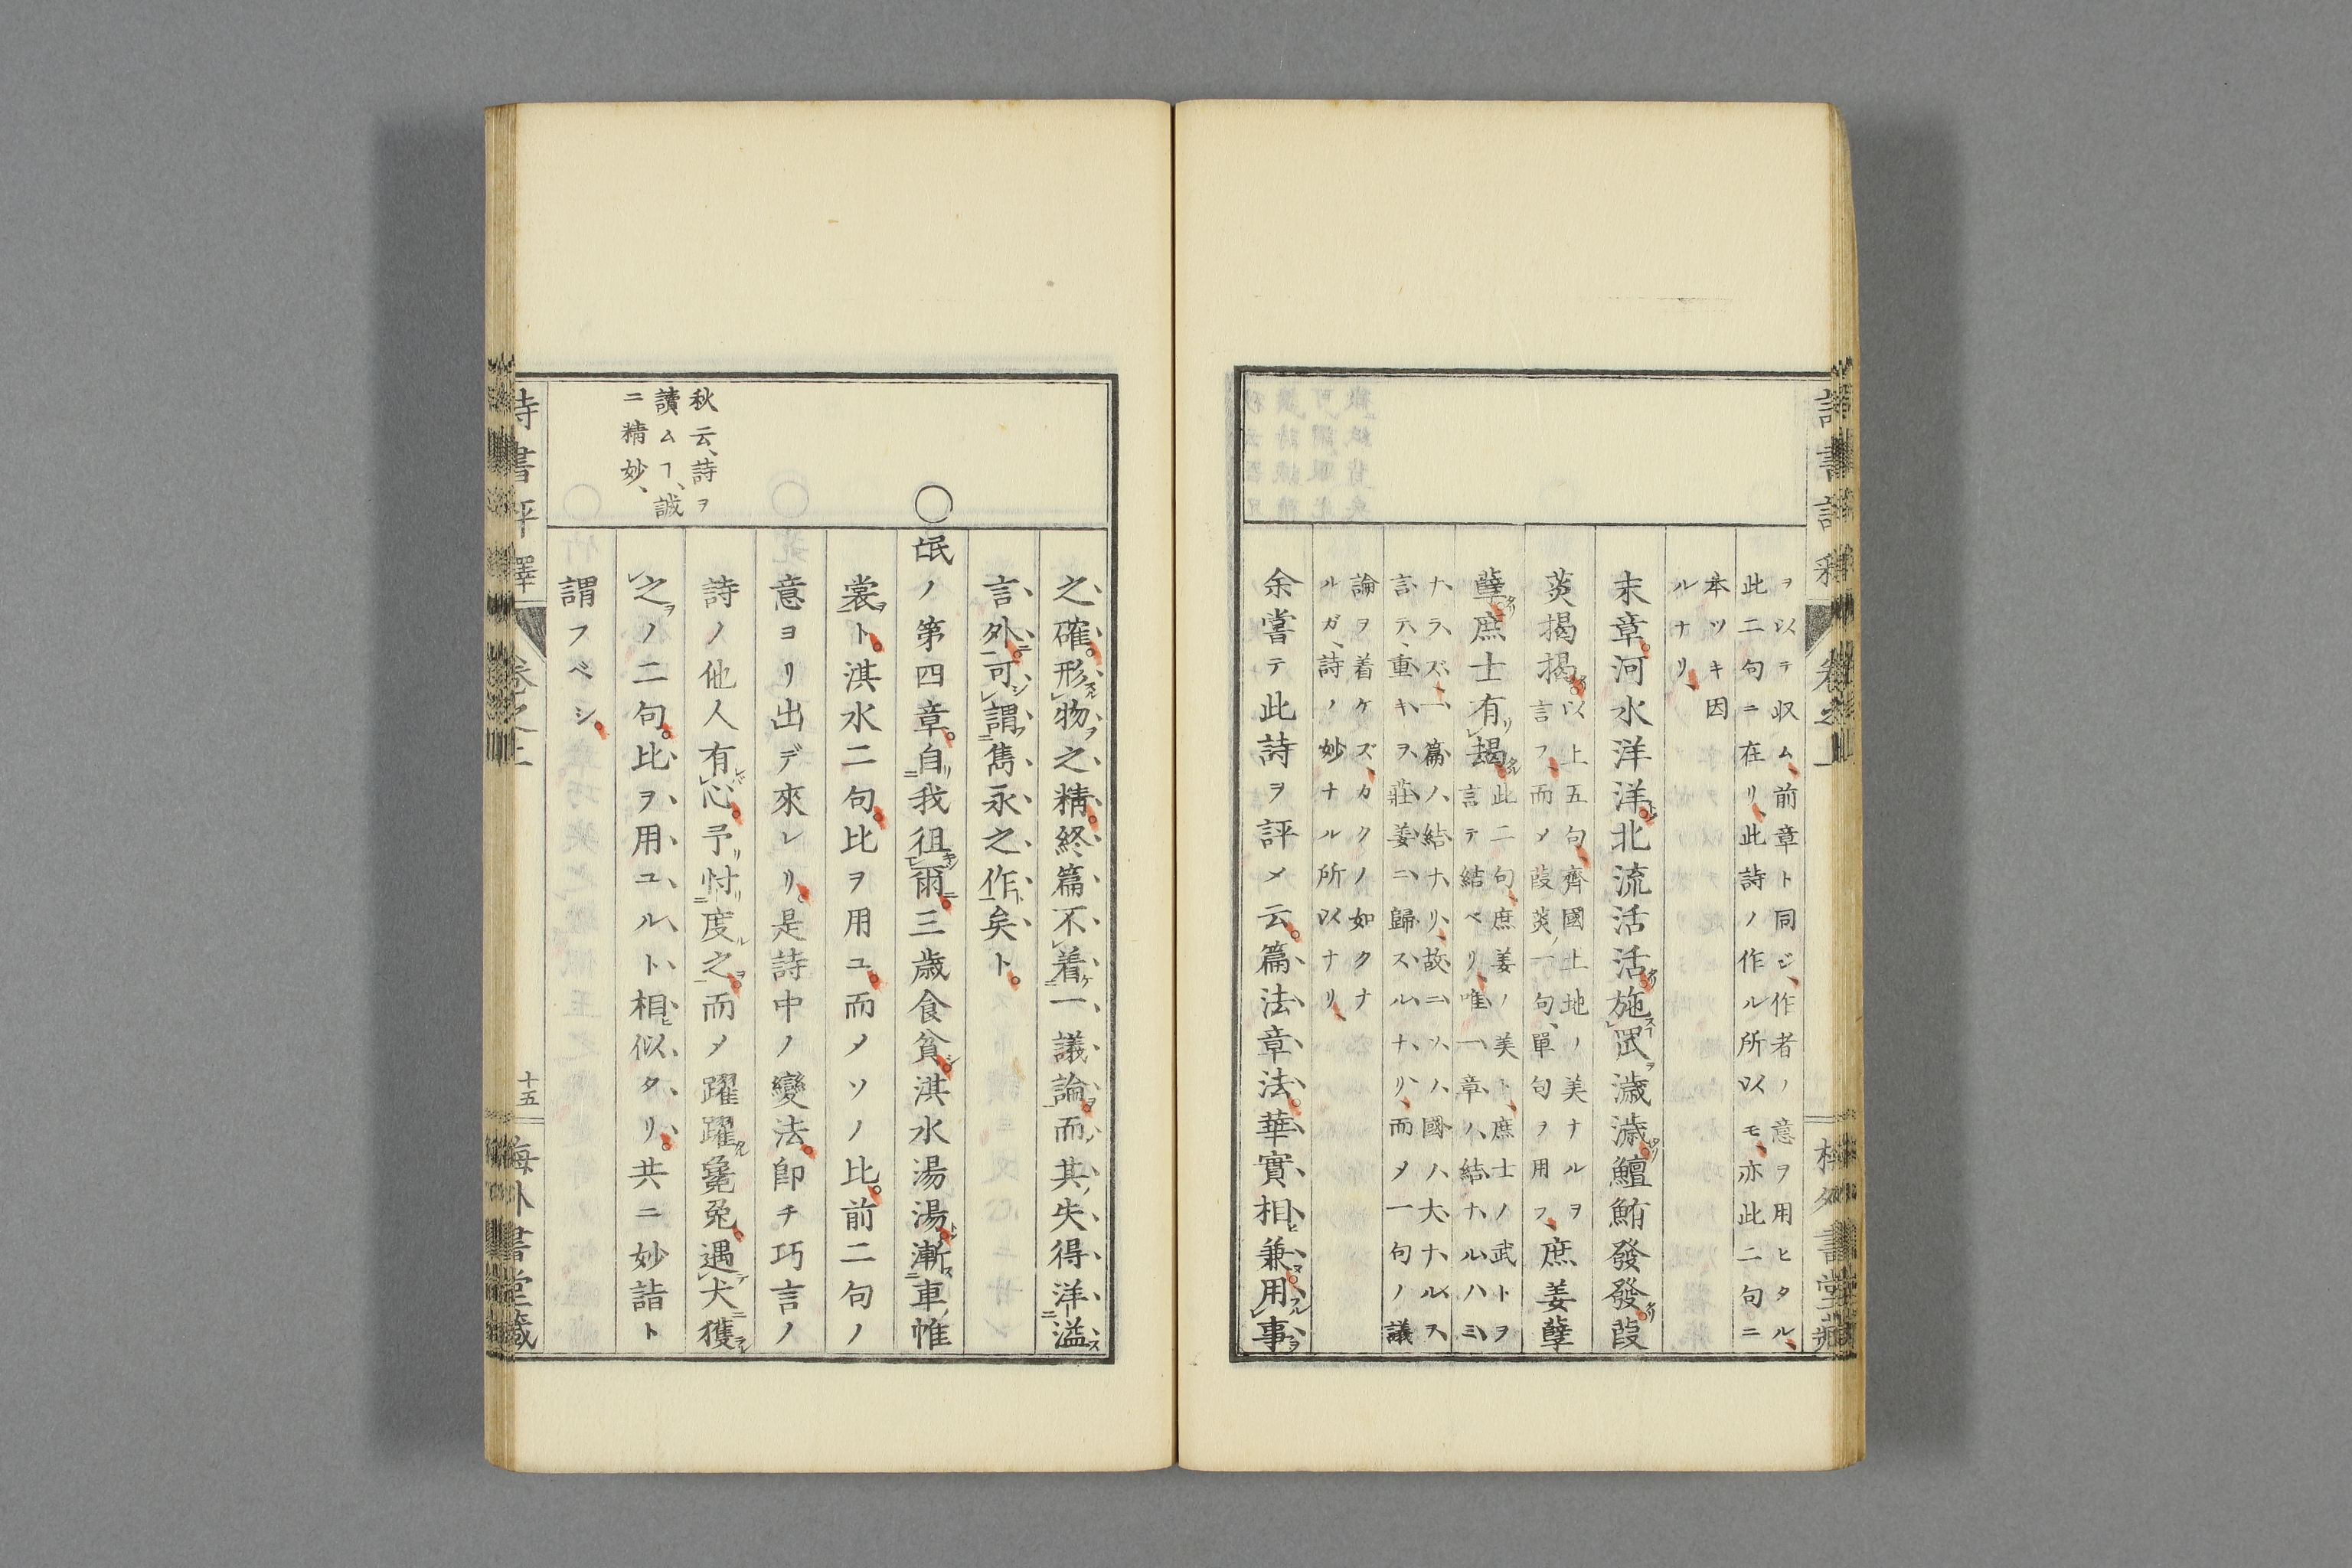 ヲ以テ収ム、前章ト同ジ、作者ノ意ヲ用ヒタル、
此二句ニ在リ、此詩ノ作ル所以モ、亦此二句ニ
本ツキ因
ルナリ、
末章。河水洋洋。北流活活。施罛濊濊。鱣鮪發發。葭
菼揭揭。
以上五句、齊國土地ノ美ナルヲ
言フ、而メ葭菼ノ一句、單句ヲ用フ、
庶姜孽
孽。庶士有朅。
此二句、庶姜ノ美ト、庶士ノ武トヲ
言テ結ベリ、唯一章ノ結ナルハミ
ナラズ、一篇ノ結ナリ、故ニソノ國ノ大ナルヲ
言テ、重キヲ莊姜ニ歸スルナリ、而メ一句ノ議
論ヲ着ケズ、カクノ如クナ
ルガ、詩ノ妙ナル所以ナリ、
余嘗テ此詩ヲ評メ云。篇法章法。華實相兼。用事
之確。形物之精。終篇不着一議論。而其失得洋溢
言外。可謂雋永之作矣ト。
○氓ノ第四章。自我徂爾。三歲食貧。淇水湯湯。漸車帷
裳ト。淇水二句。比ヲ用ユ。而メソノ比。前二句ノ
意ヨリ出デ來レリ。是詩中ノ變法。卽チ巧言ノ
詩ノ他人有心。予忖度之。而メ躍躍毚兔。遇犬獲
之ノ二句。比ヲ用ユルト相似タリ。共ニ妙詣ト
謂フベシ。
秋云、詩ヲ
讀ムヿ、誠
ニ精妙、
卷之上
十五